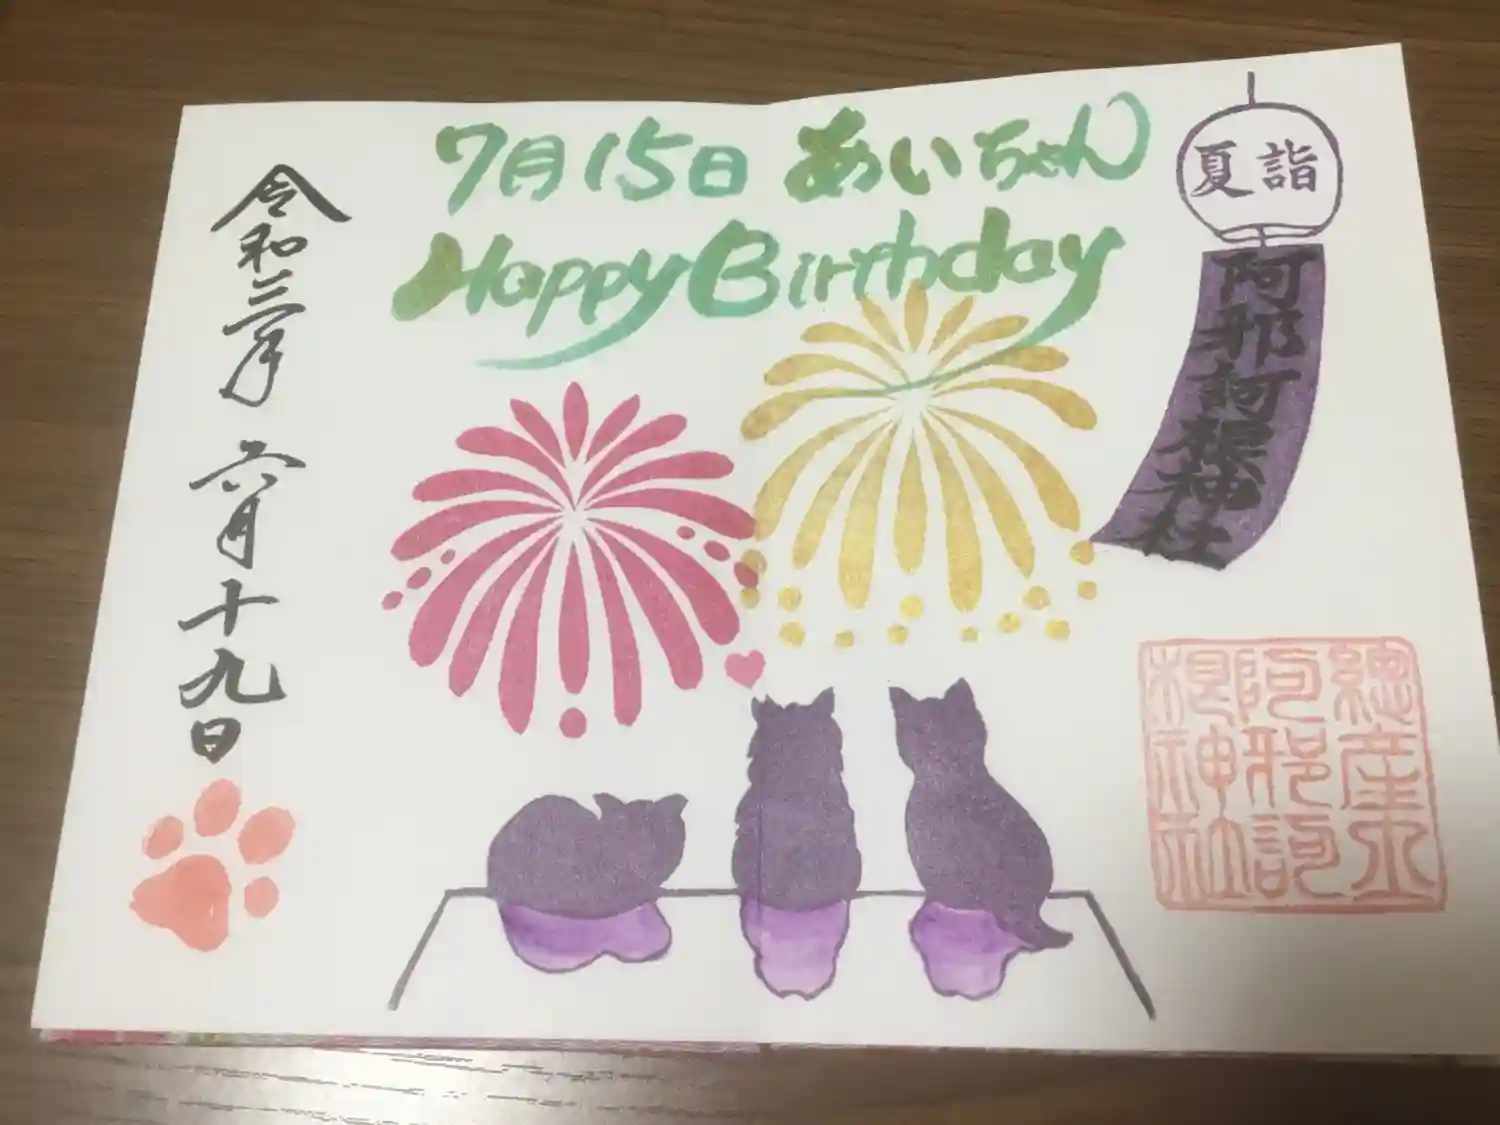 7月15日 あいちゃん
Happy Birthday
夏詣
阿邪訶根神社
總産土
阿邪訶
根神社
令和三年 六月十九日